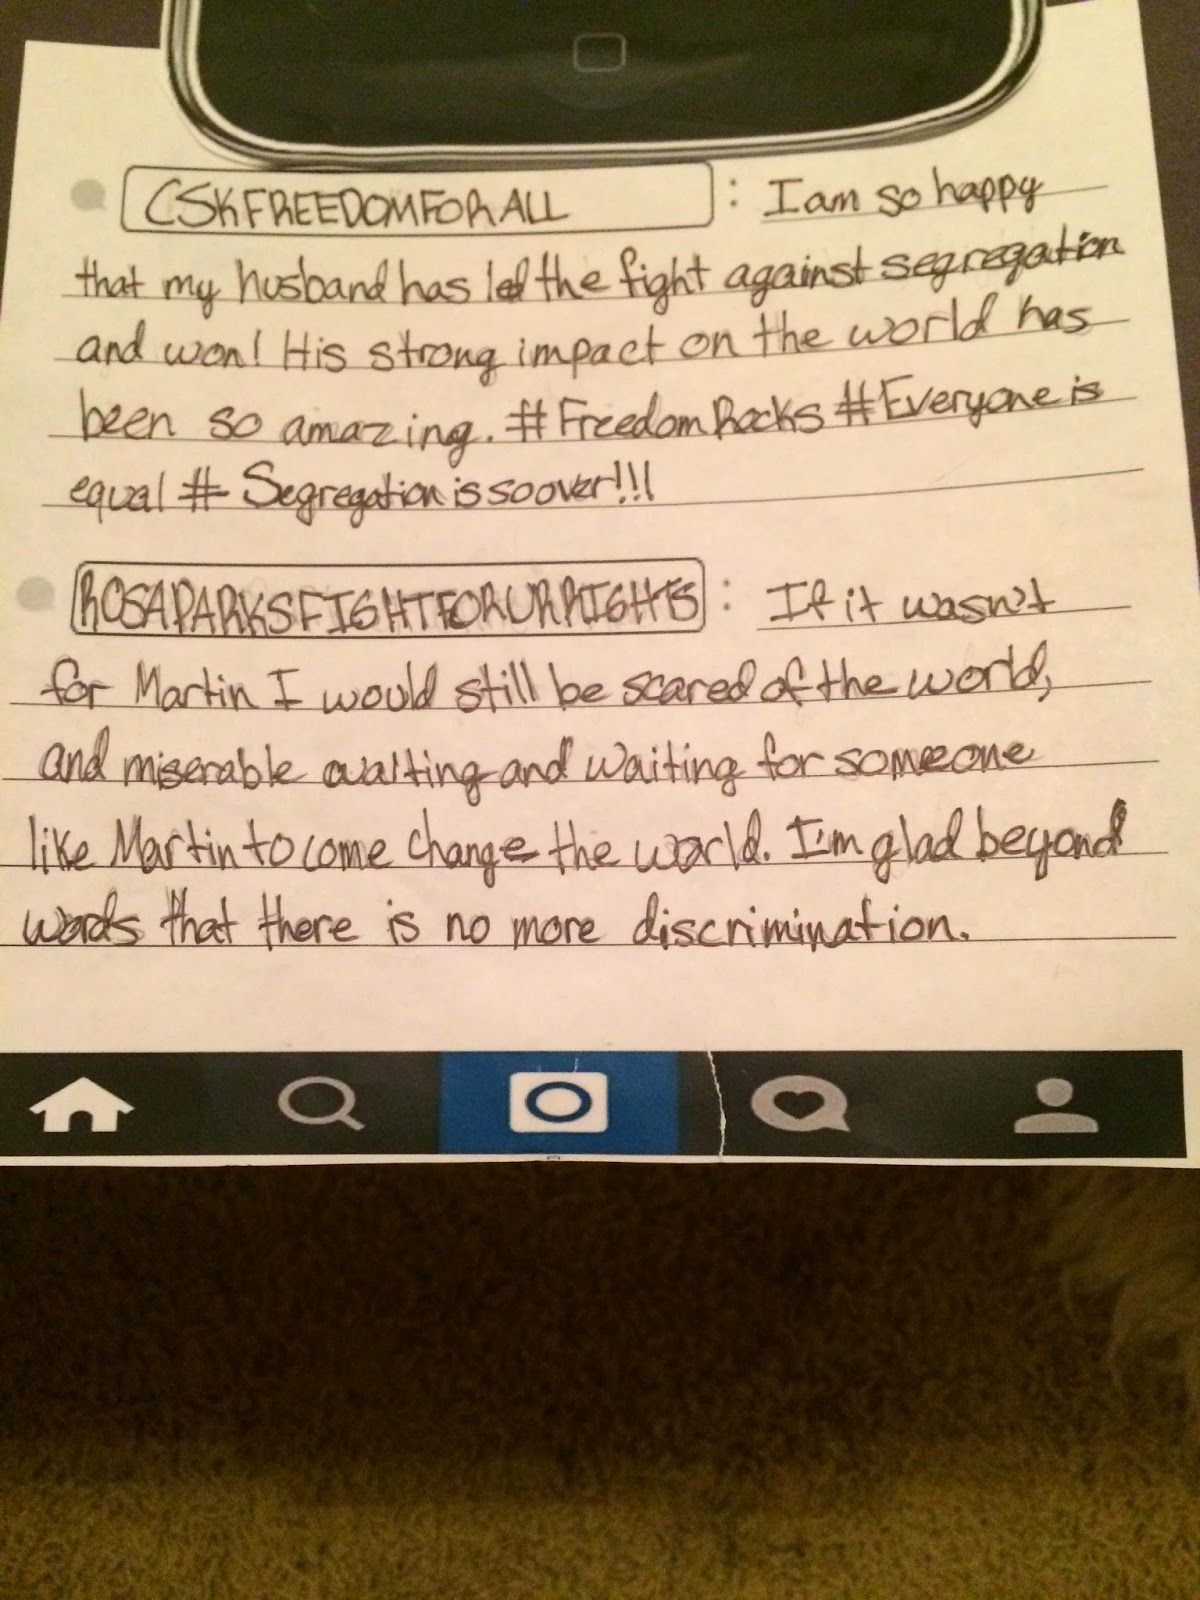 CSKFREEDOMFORALL : I am so happy
that my husband has led the fight against segregation
and won! His strong impact on the world has
been so amazing. #FreedomRocks #Everyone is
equal # Segregation is so over!!!
ROSAPARKSFIGHTFORURRIGHTS : If it wasn't
for Martin I would still be scared of the world,
and miserable waiting and waiting for someone
like Martin to come change the world. I'm glad beyond
words that there is no more discrimination.